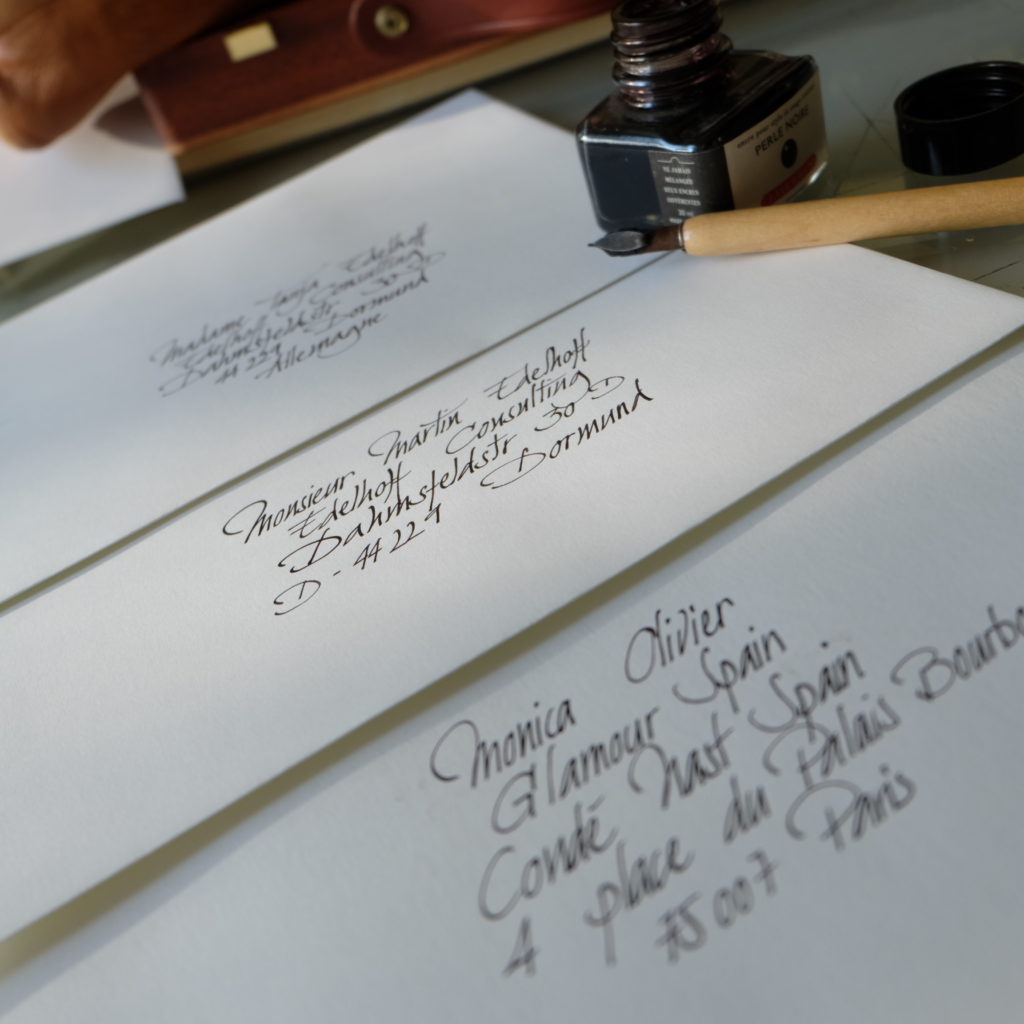 PERLE NOIRE
NE JAMAIS
MÉLANGER
DEUX ENCRES
DIFFÉRENTES
30 ml
Madame Tanja Edelhoff
Edelhoff Consulting
Dahmsfeldstr 30 D
44 229 Dormund
Allemagne
Monsieur Martin Edelhoff
Edelhoff Consulting
Dahmsfeldstr 30 D
D - 44 229 Dormund
Monica Olivier
Glamour Spain
Condé Nast Spain
4 place du Palais Bourbo
75 007 Paris